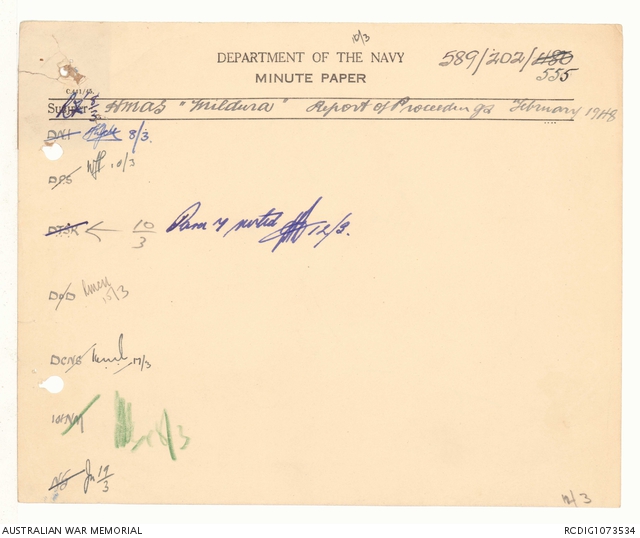 10/3
DEPARTMENT OF THE NAVY
MINUTE PAPER
589/202/480
555
C.A41/45.
Subject HMAS "Mildura" Report of Proceedings February 1948
DNI 8/3.
DPS 10/3
DTSR 10/3 Para 4 noted 12/3.
DofD 15/3
DCNS 17/3
18/3
19/3
12/3
AUSTRALIAN WAR MEMORIAL
RCDIG1073534